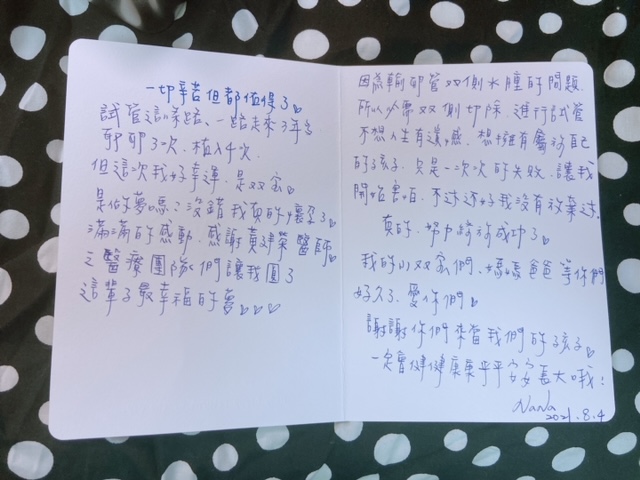 一切辛苦但都值得了♡
試管這條路、一路走來3年多
取卵3次、植入4次
但這次我好幸運、是双寶♡
是作夢嗎?沒錯我真的懷孕了
滿滿的感動、感謝黃建榮醫師
之醫療團隊們讓我圓了
這輩子最幸福的夢♡♡♡
因為輸卵管双側水腫的問題
所以必需双側切除、進行試管
不想人生有遺憾、想擁有屬於自己
的孩子、只是一次次的失敗、讓我
開始害怕、不過還好我沒有放棄過、
真的、努力終於成功了♡
我的小双寶們、媽媽爸爸等你們
好久了、愛你們♡
謝謝你們來當我們的孩子♡
一定會健健康康平平安安長大哦!
NaNa
2021.8.4